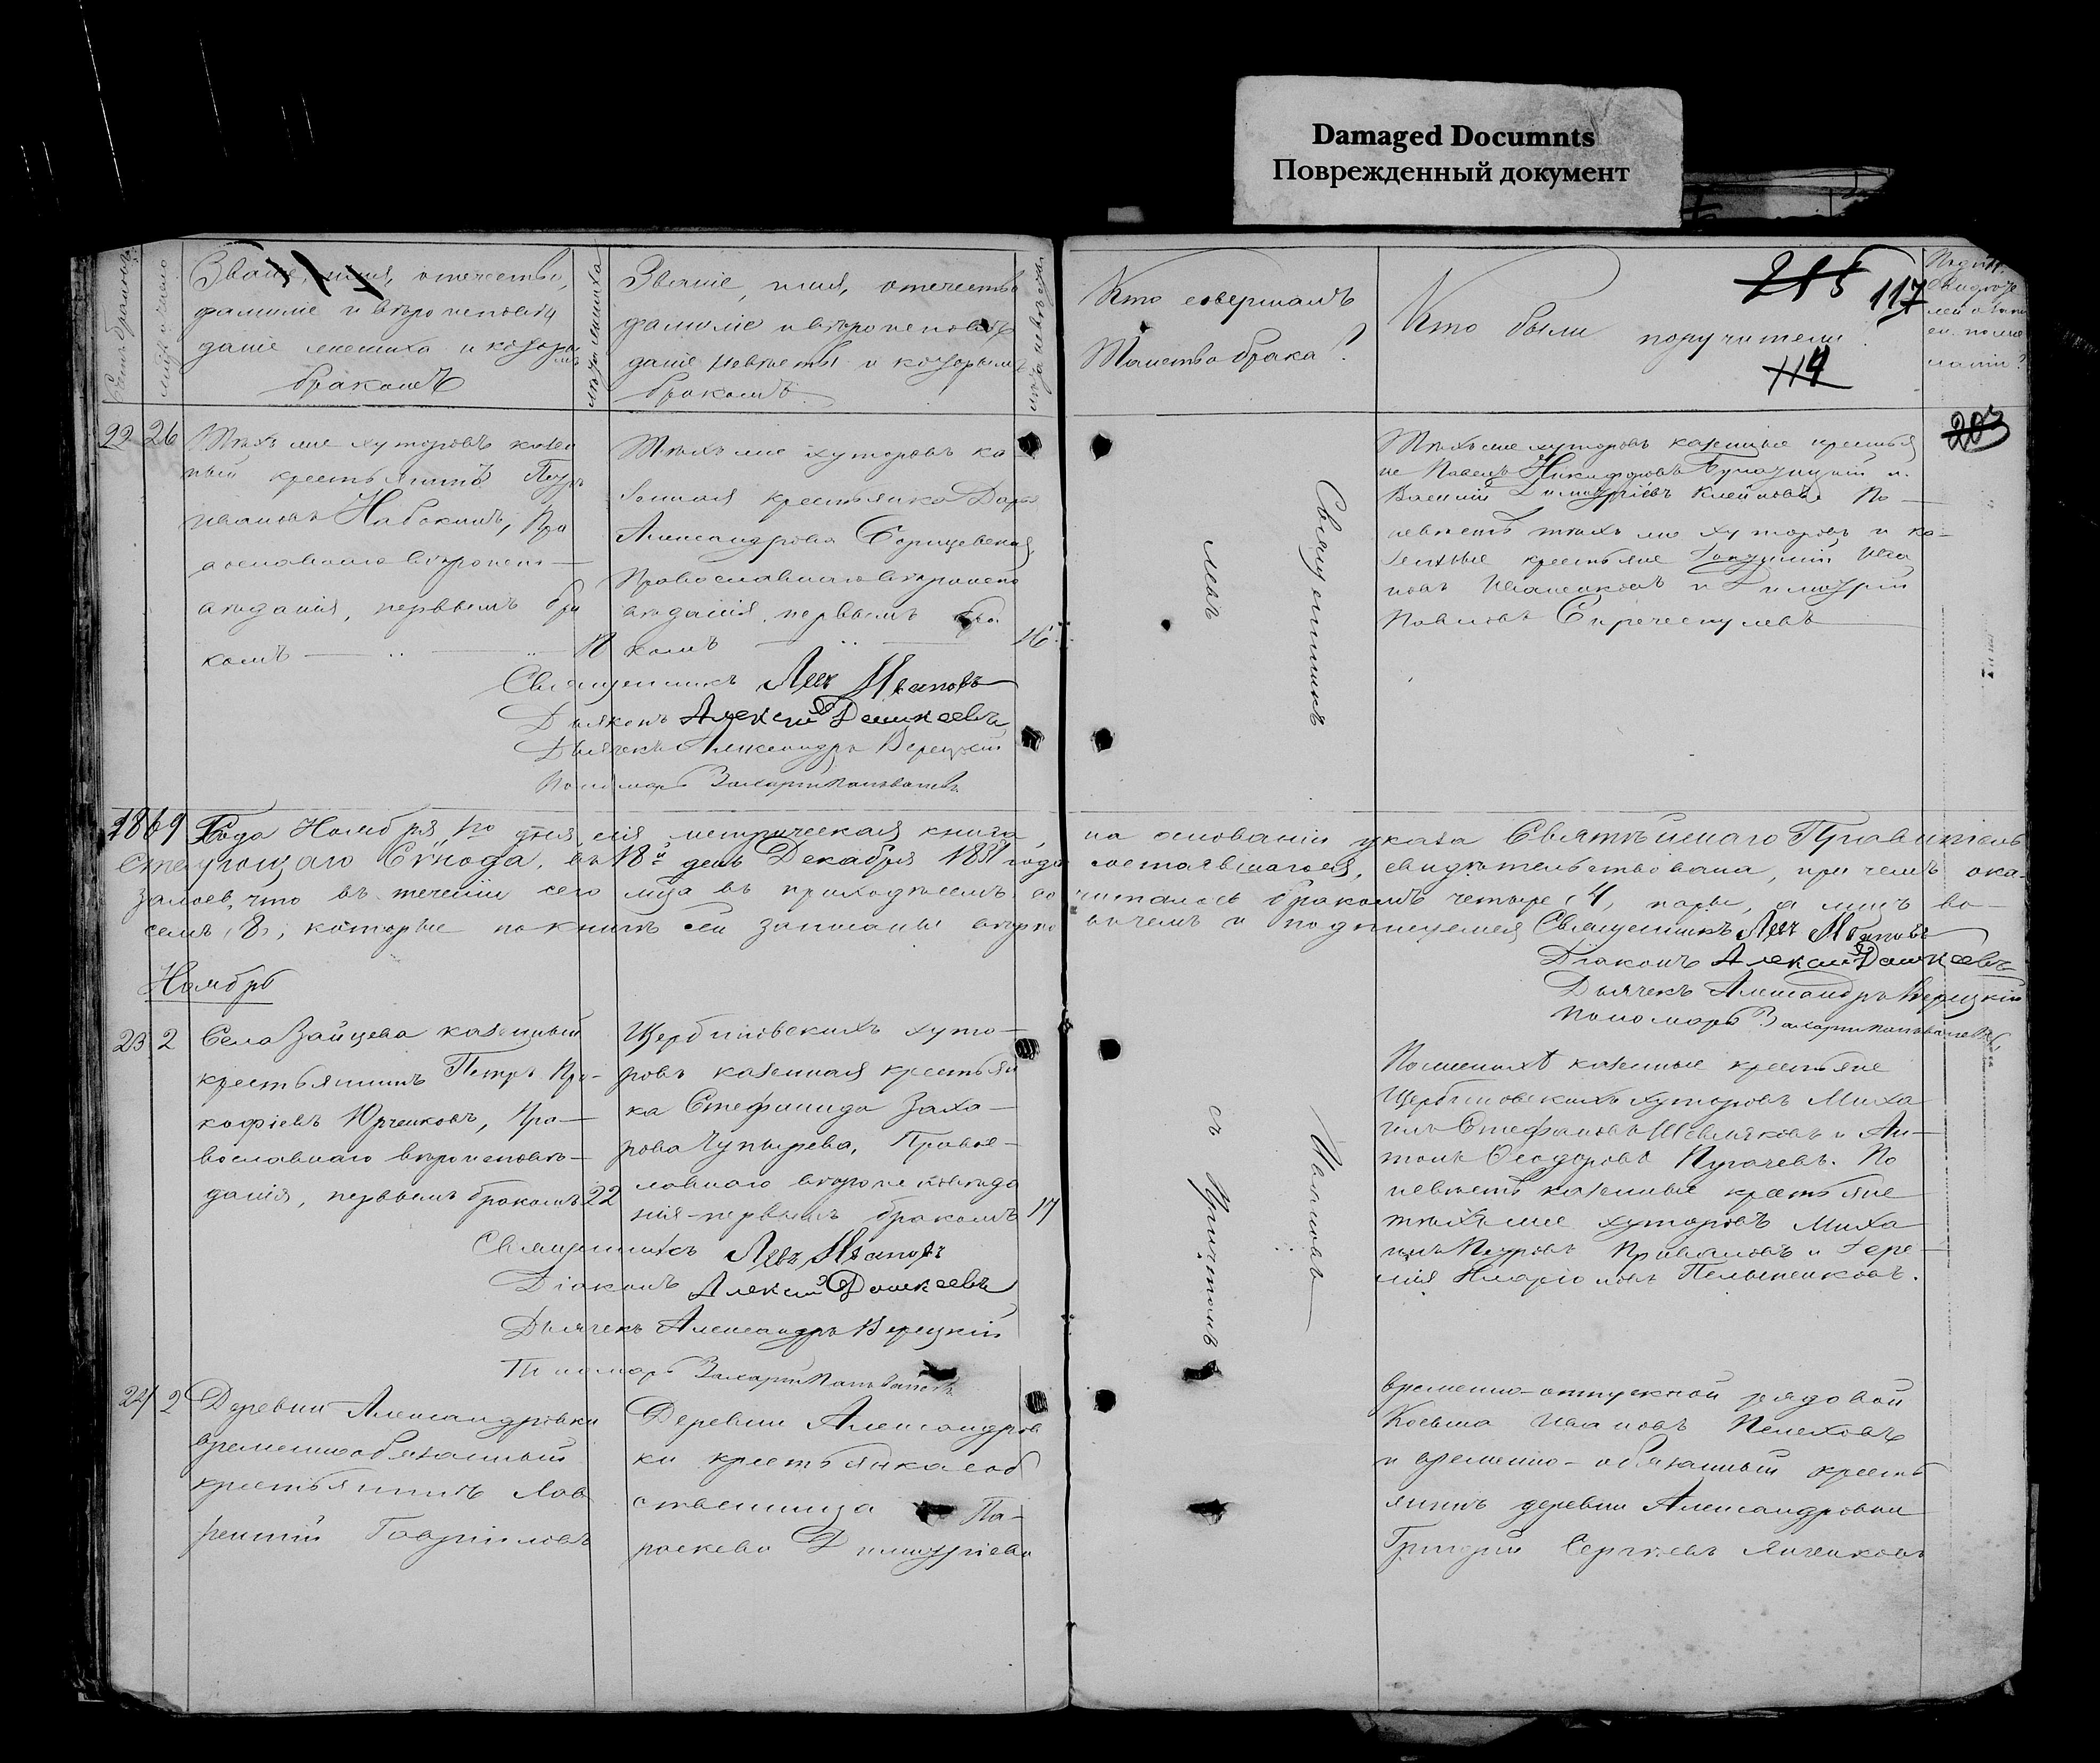 Damaged Documnts
Поврежденный документ
Счетъ браковъ
Званіе, имя, отечество,
фамиліе и вѣроисповѣ
даніе жениха и которы
мъ
бракомъ
лѣта жениха
Званіе, имя, отечество
фамиліе и вѣроисповѣ
даніе невѣсты и которымъ
бракомъ.
лѣта невѣсты
Кто совершалъ
Таинство брака?
Кто были поручители?
215 117
114
203
22 26
Тѣхъ же хуторовъ казен
ный крестьянинъ Петръ
Ивановъ Набокинъ, Пра
вославнаго вѣроиспо—
вѣданія, первымъ бра
комъ
Тѣхъ же хуторовъ ка
зенная крестьянка Дарья
Александрова
Православнаго вѣроиспо
вѣданія, первымъ бра
комъ 16
Священникъ Левъ Ивановъ
Дьяконъ Алексій Дашкеевъ
Дьячекъ Александръ Верецкій
Пономарь Захарій
Священникъ
Левъ
Тѣхъ же хуторовъ казенные крестья
не Павелъ Никифоровъ и
Василій Димитріевъ Клейновъ. По—
невѣстѣ тѣхъ же хуторовъ и ка—
зенные крестьяне Ива
новъ Ивашковъ и Димитрій
Павловъ
1869 Года Ноября 1го дня сія метрическая книга на основаніи указа Святѣйшаго Правитель
ствующаго Сѵнода, въ 18й день Декабря 1831 года состоявшагося, свидѣтельствована, при чемъ ока—
залось, что въ теченіи сего мѣсца въ приходѣ семъ сочиталось бракомъ четыре, 4, пары, а лицъ во—
семь, 8, которые по книгѣ сей записаны вѣрно въ чемъ и подписуемся Священникъ Левъ Ивановъ
Діаконъ Алексій Дашкеевъ
Дьячекъ Александръ Верецкій
Пономарь Захарій
Ноябрь
23 2
Села Зайцева казенный
крестьянинъ Петръ Про—
кофіевъ Юрченковъ, Пра—
вославнаго вѣроисповѣ—
данія, первымъ бракомъ 22
Щербиновскихъ хуто—
ровъ казенная крестьян
ка Стефанида Заха—
рова Чупырева, Правос—
лавнаго вѣроисповѣда
нія—первымъ бракомъ 17
Священникъ Левъ Ивановъ
Діаконъ Алексій Дашкеевъ
Дьячекъ Александръ Верецкій
Пономарь Захарій
Ивановъ
съ Причтомъ
По женихѣ казенные крестьяне
Щербиновскихъ хуторовъ Миха
илъ Стефановъ Шевляковъ и Ан—
тонъ Ѳеодоровъ Пугачевъ. По
невѣстѣ казенные крестьяне
тѣхъ же хуторовъ Миха
илъ Петровъ Приваловъ и Іере—
мія Иларіоновъ Пелыпенковъ.
24 2
Деревни Александровки
временнообязанный
крестьянинъ Лав
рентій Гавриловъ
Деревни Александров
ки крестьянка соб
ственница Па—
раскева Димитріева
временно-отпускной рядовой
Косьма Ивановъ Пелеховъ
и временно-обязанный кресть
янинъ деревни Александровки
Григорій Сергѣевъ Яиченковъ